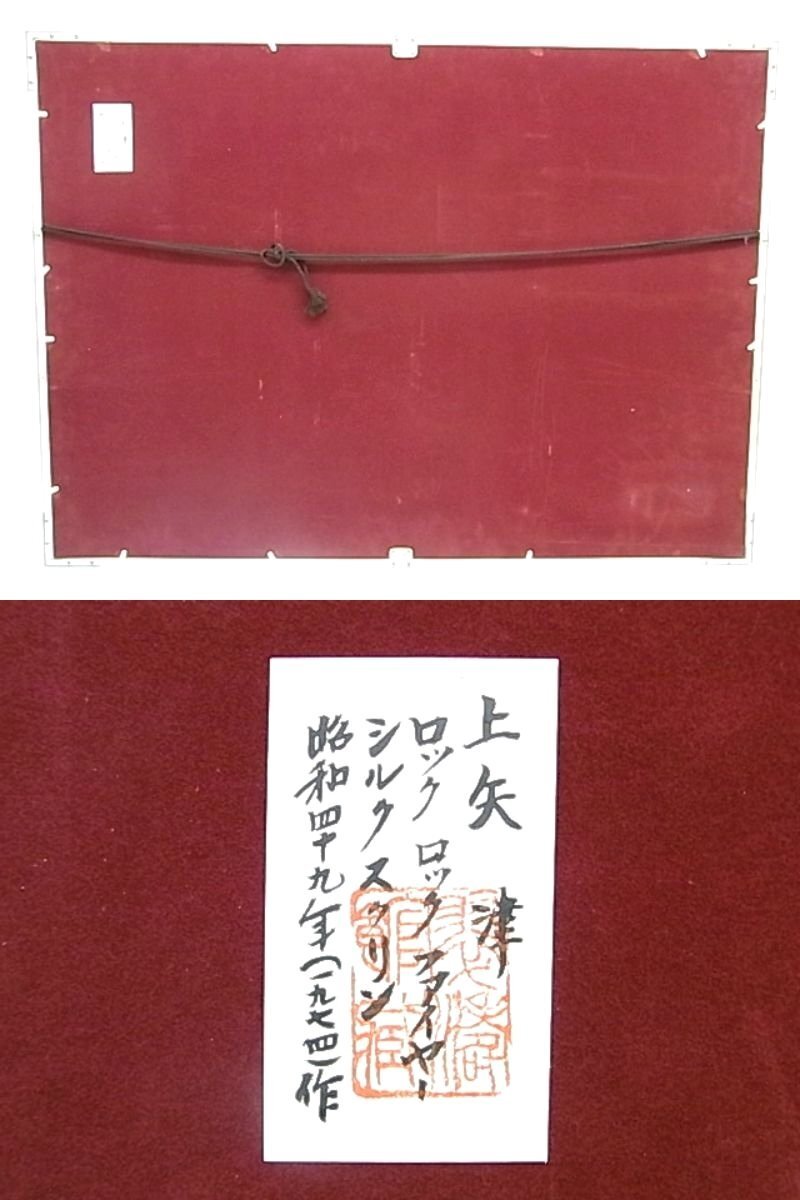 上矢 津
ロック ロック ファイヤー
シルクスクリン
昭和四十九年(一九七四)作